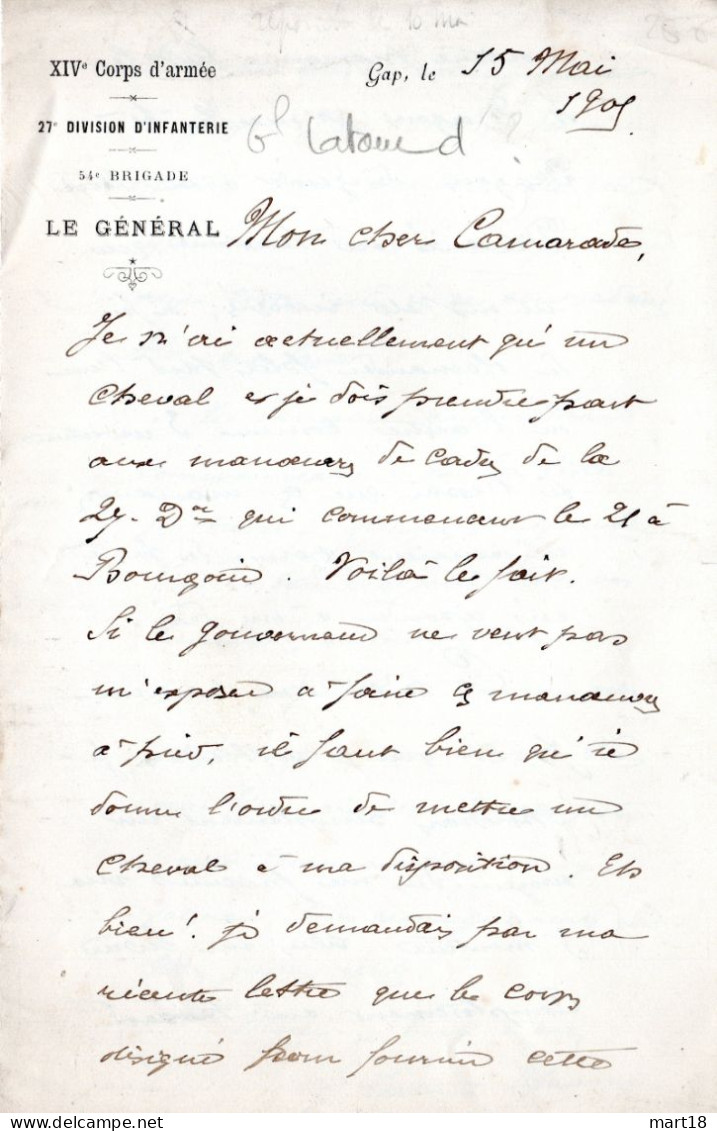 répondu le 16 Mai
XIVe Corps d'armée
Gap, le 15 Mai
1905
27e DIVISION D'INFANTERIE
Gl
54e BRIGADE
LE GÉNÉRAL
Mon cher Camarade,
Je n'ai actuellement qu'un
cheval et je dois prendre part
aux manœuvres de cadres de la
27e Don qui commencent le 21 à
Bourgoin. Voilà le fait.
Si le Gouverneur ne veut pas
m'exposer à faire ces manœuvres
à pied, il faut bien qu'il
donne l'ordre de mettre un
cheval à ma disposition. Eh
bien! je demandais par ma
récente lettre que le corps
désigné pour fournir cette
mart18